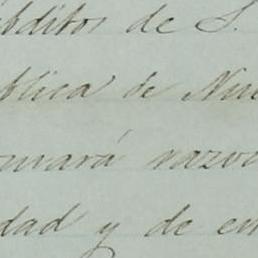 bditos de S.
blica de Nue
mará razo
dad y de en